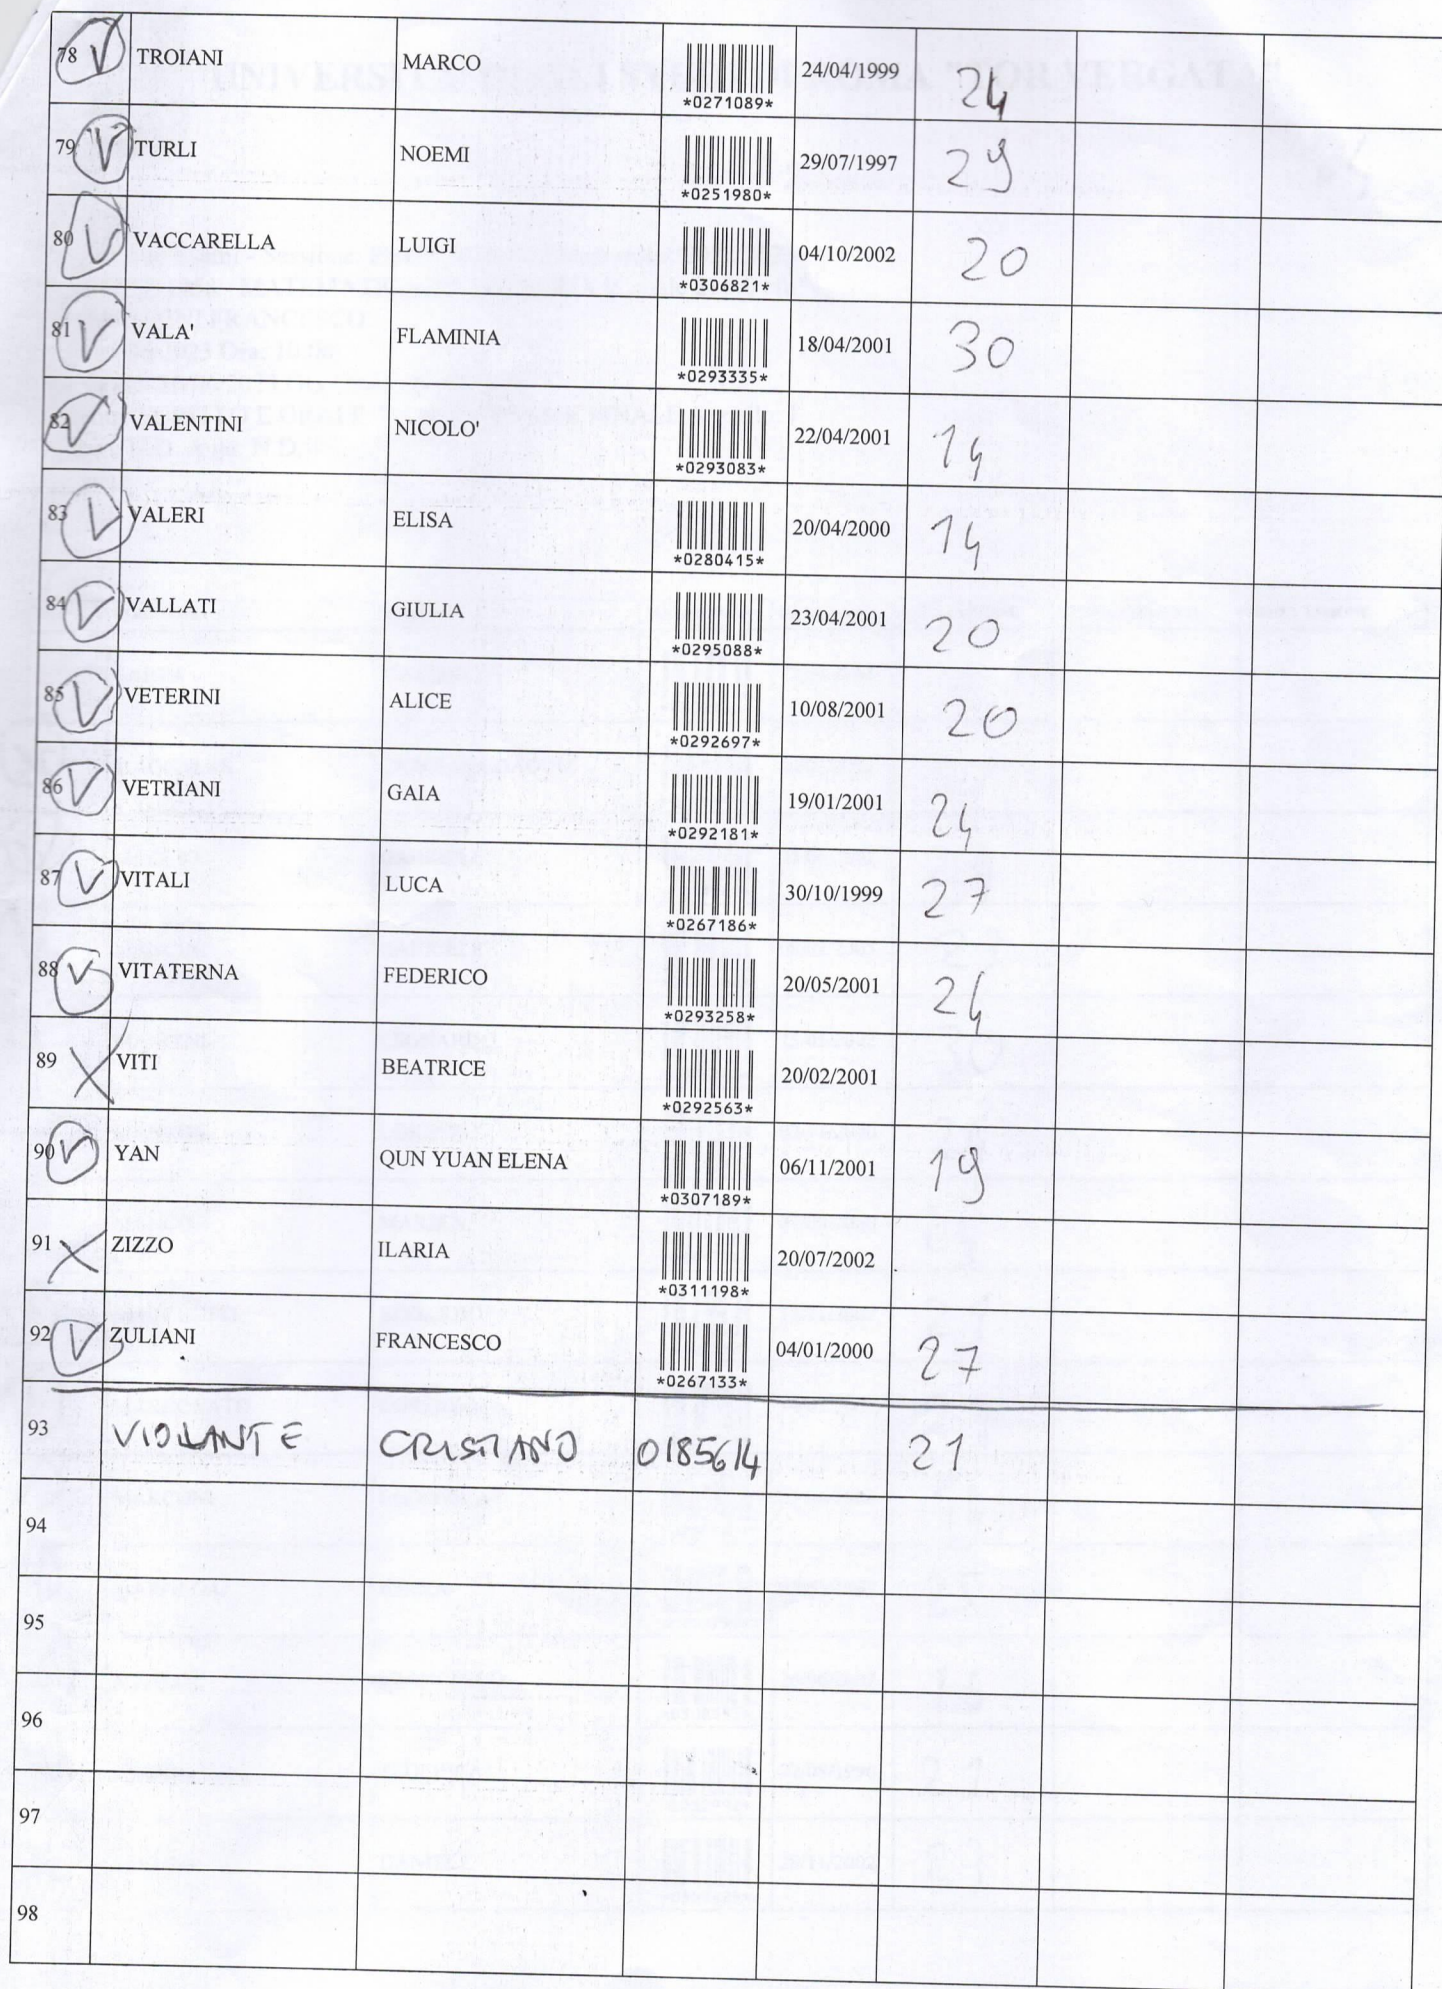 78 V TROIANI MARCO *0271089* 24/04/1999 24
79 V TURLI NOEMI *0251980* 29/07/1997 29
80 V VACCARELLA LUIGI *0306821* 04/10/2002 20
81 V VALA' FLAMINIA *0293335* 18/04/2001 30
82 V VALENTINI NICOLO' *0293083* 22/04/2001 14
83 V VALERI ELISA *0280415* 20/04/2000 14
84 V VALLATI GIULIA *0295088* 23/04/2001 20
85 V VETERINI ALICE *0292697* 10/08/2001 20
86 V VETRIANI GAIA *0292181* 19/01/2001 24
87 V VITALI LUCA *0267186* 30/10/1999 27
88 V VITATERNA FEDERICO *0293258* 20/05/2001 24
89 X VITI BEATRICE *0292563* 20/02/2001
90 V YAN QUN YUAN ELENA *0307189* 06/11/2001 19
91 X ZIZZO ILARIA *0311198* 20/07/2002
92 V ZULIANI FRANCESCO *0267133* 04/01/2000 27
93 VIOLANTE CRISTIANO 0185614 21
94
95
96
97
98